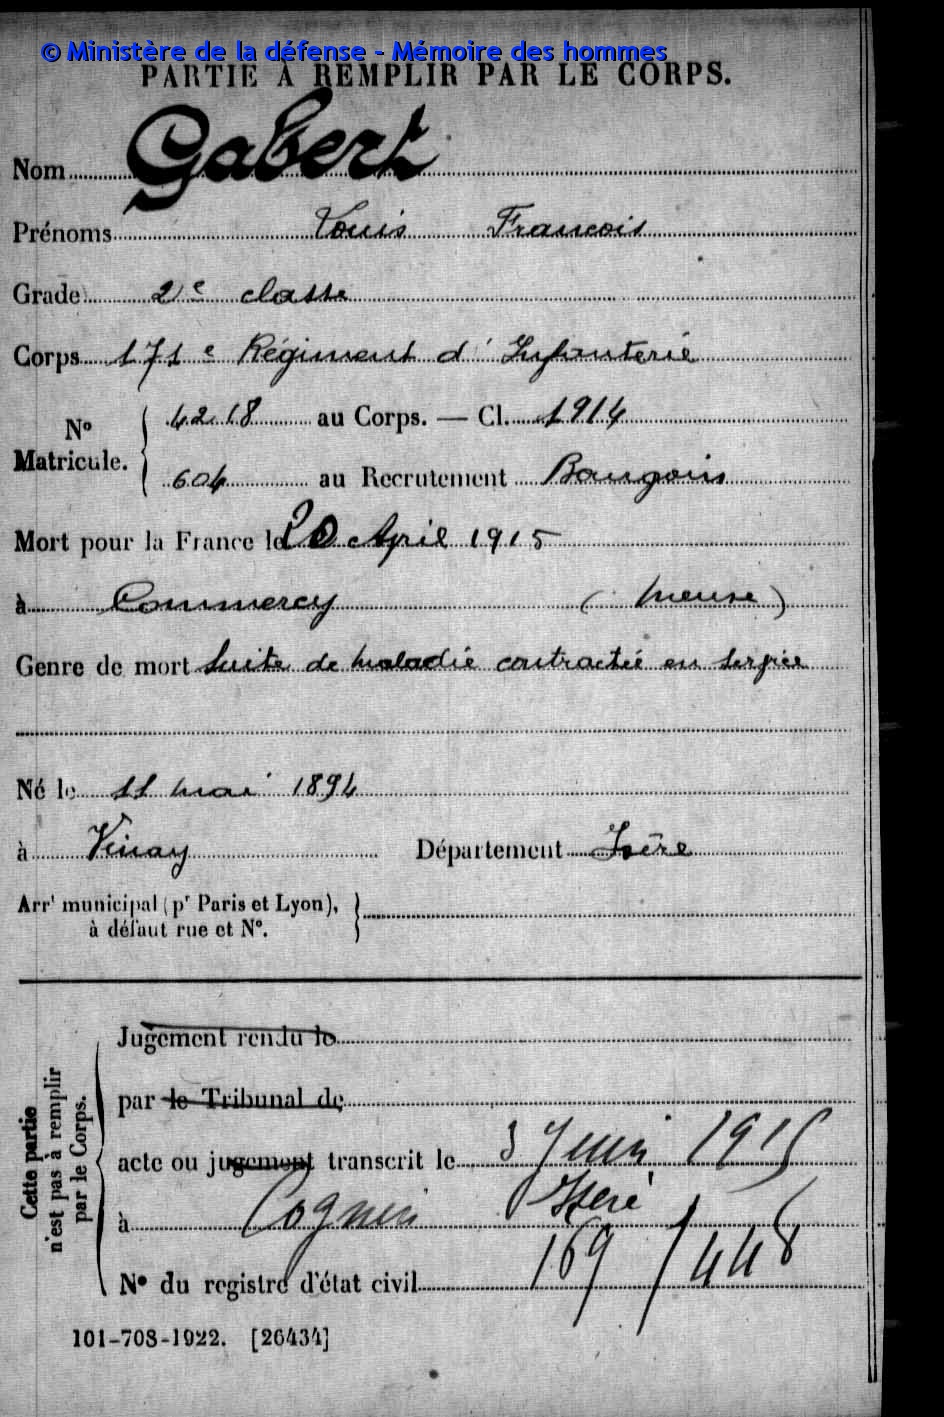 © Ministère de la défense - Mémoire des hommes
PARTIE À REMPLIR PAR LE CORPS.
Nom Gabert
Prénoms Louis François
Grade 2e classe
Corps 171e Régiment d'Infanterie
No Matricule. 4218 au Corps. — Cl. 1914
604 au Recrutement Bourgoin
Mort pour la France le 20 April 1915
à Commercy (Meuse)
Genre de mort Suite de maladie contractée en Service
Né le 11 mai 1894
à Vinay Département Isère
Arrt municipal (pr Paris et Lyon),
à défaut rue et No.
Cette partie n'est pas à remplir par le Corps.
Jugement rendu le
par le Tribunal de
acte ou jugement transcrit le 3 Juin 1915
à Cognin Isère
No du registre d'état civil 169/448
101-708-1922. [26434]